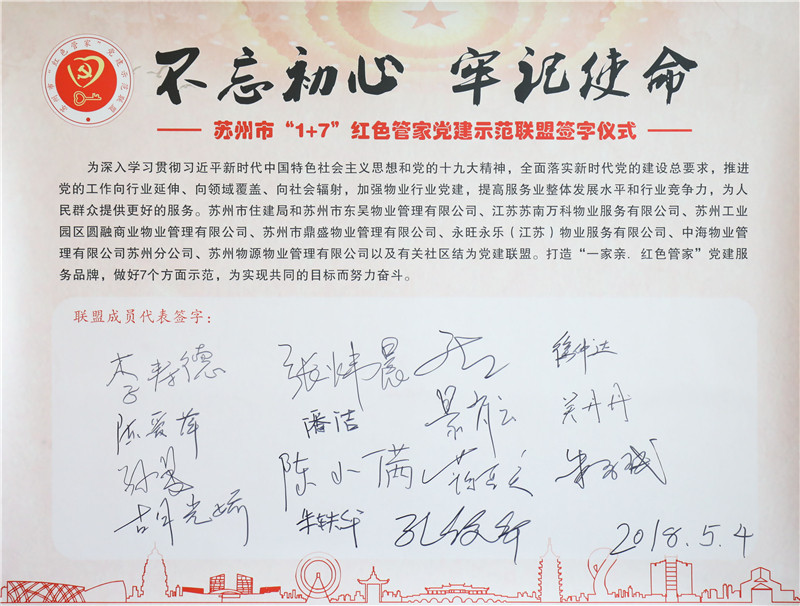 苏州市“红色管家”党建示范联盟
不忘初心 牢记使命
苏州市“1+7”红色管家党建示范联盟签字仪式
为深入学习贯彻习近平新时代中国特色社会主义思想和党的十九大精神，全面落实新时代党的建设总要求，推进
党的工作向行业延伸、向领域覆盖、向社会辐射，加强物业行业党建，提高服务业整体发展水平和行业竞争力，为人
民群众提供更好的服务。苏州市住建局和苏州市东吴物业管理有限公司、江苏苏南万科物业服务有限公司、苏州工业
园区圆融商业物业管理有限公司、苏州市鼎盛物业管理有限公司、永旺永乐（江苏）物业服务有限公司、中海物业管
理有限公司苏州分公司、苏州物源物业管理有限公司以及有关社区结为党建联盟。打造“一家亲．红色管家”党建服
务品牌，做好7个方面示范，为实现共同的目标而努力奋斗。
联盟成员代表签字：
李寿德 张炜晨
陈爱萍 潘洁 吴丹丹
陈小满
胡晓娇 朱轶华
2018.5.4